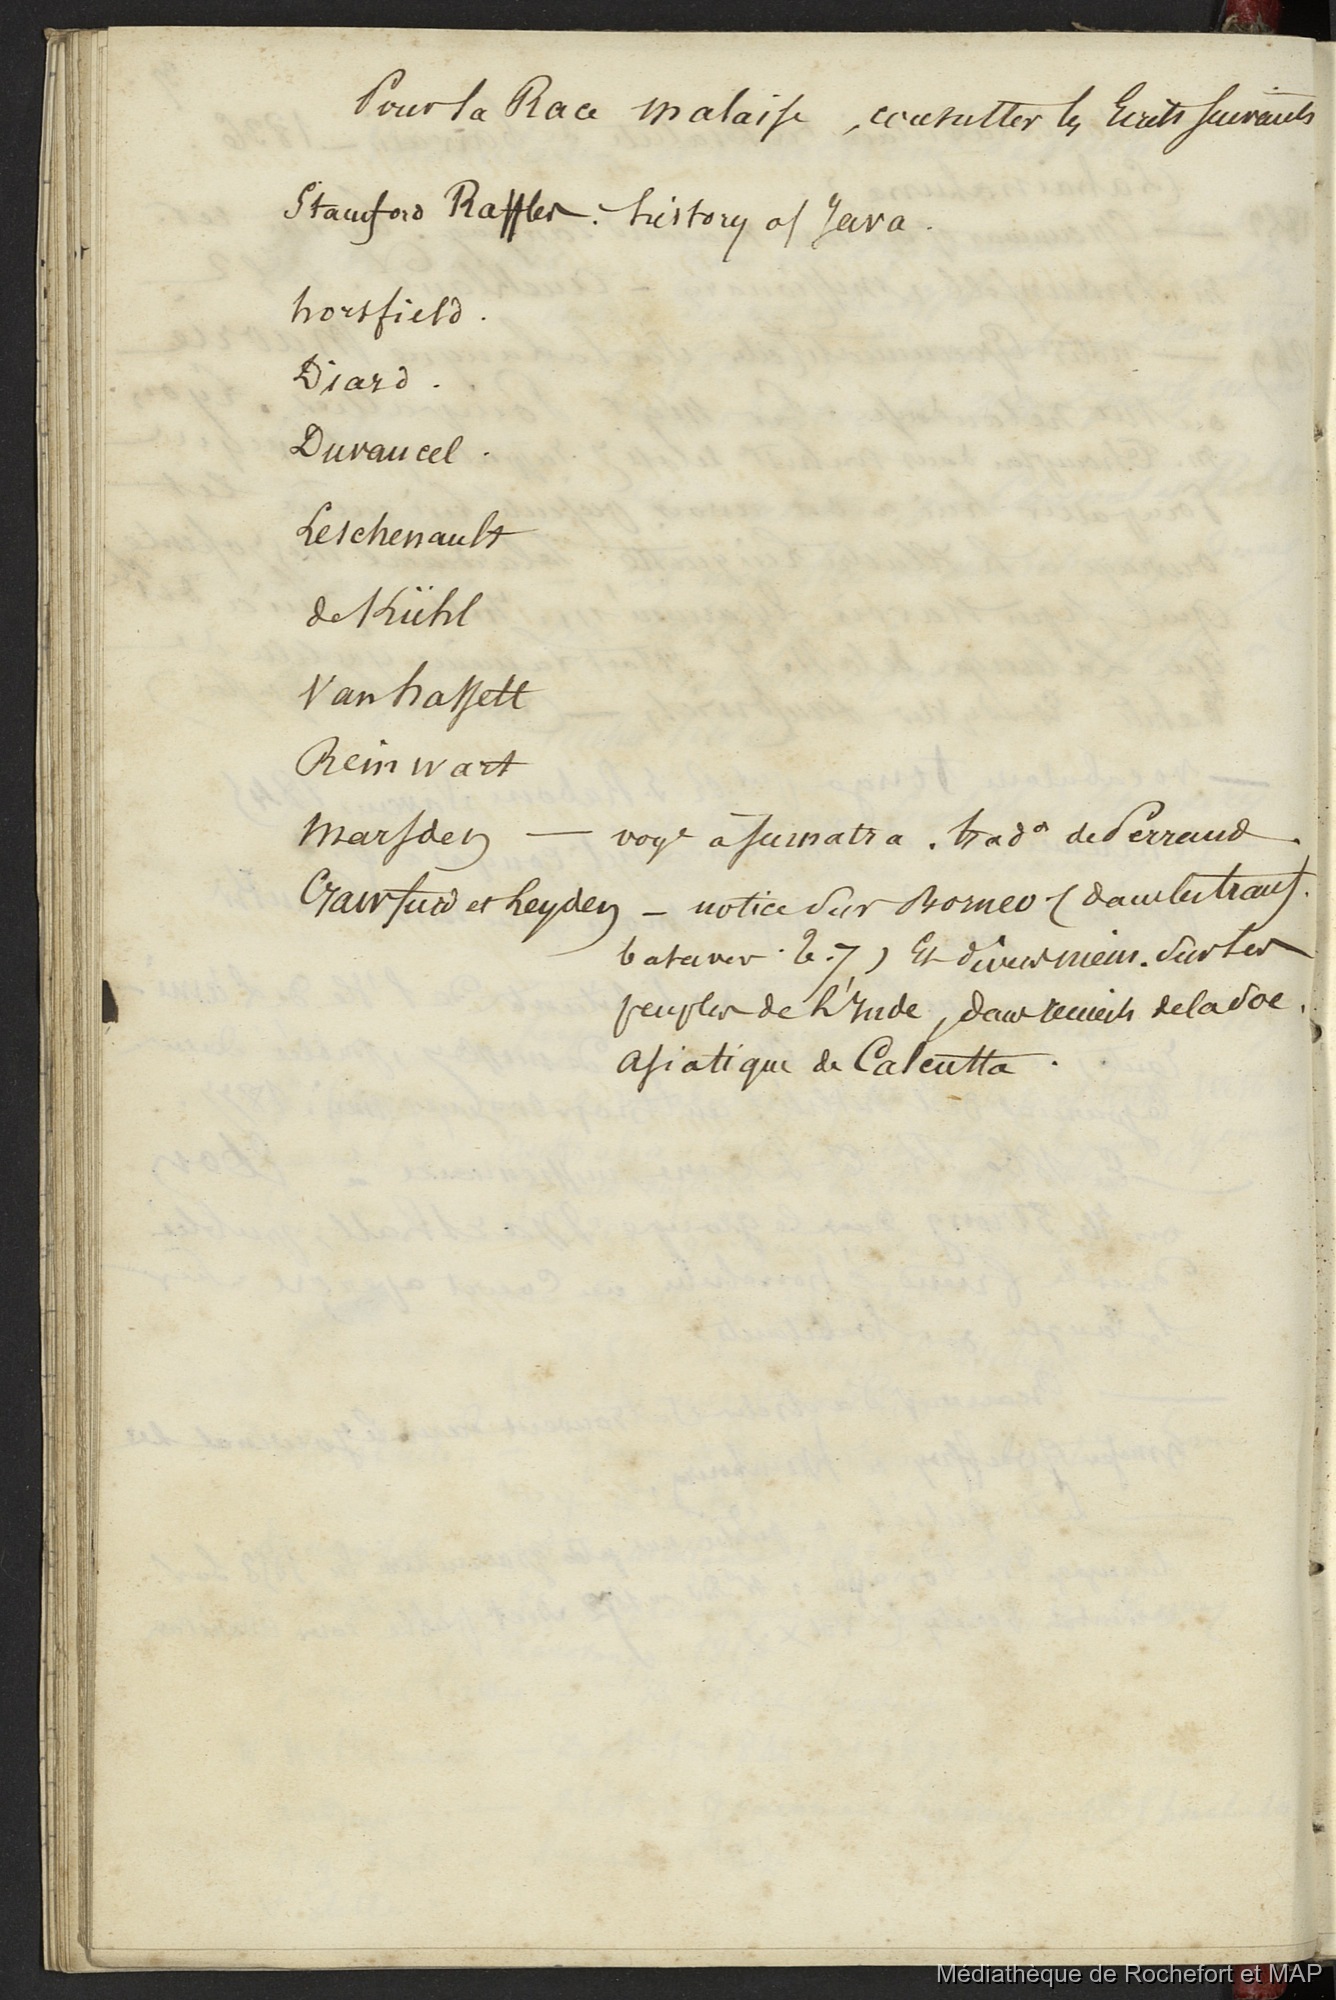 Pour la Race malaise, consulter les Ecrits suivants
Stamford Raffles : history of Java.
horsfield.
Diard.
Duvaucel.
Leschenault
de Kühl
Van hasselt
Reinwart
Marsden — voye à Sumatra. trado de Perraud.
Crawfurd et Leyden — notice sur Borneo (dans les trans.
bataves. t. 7) Et divers mém. sur les
peuples de l'Inde, dans recueils de la soc.
asiatique de Calcutta.
Médiathèque de Rochefort et MAP